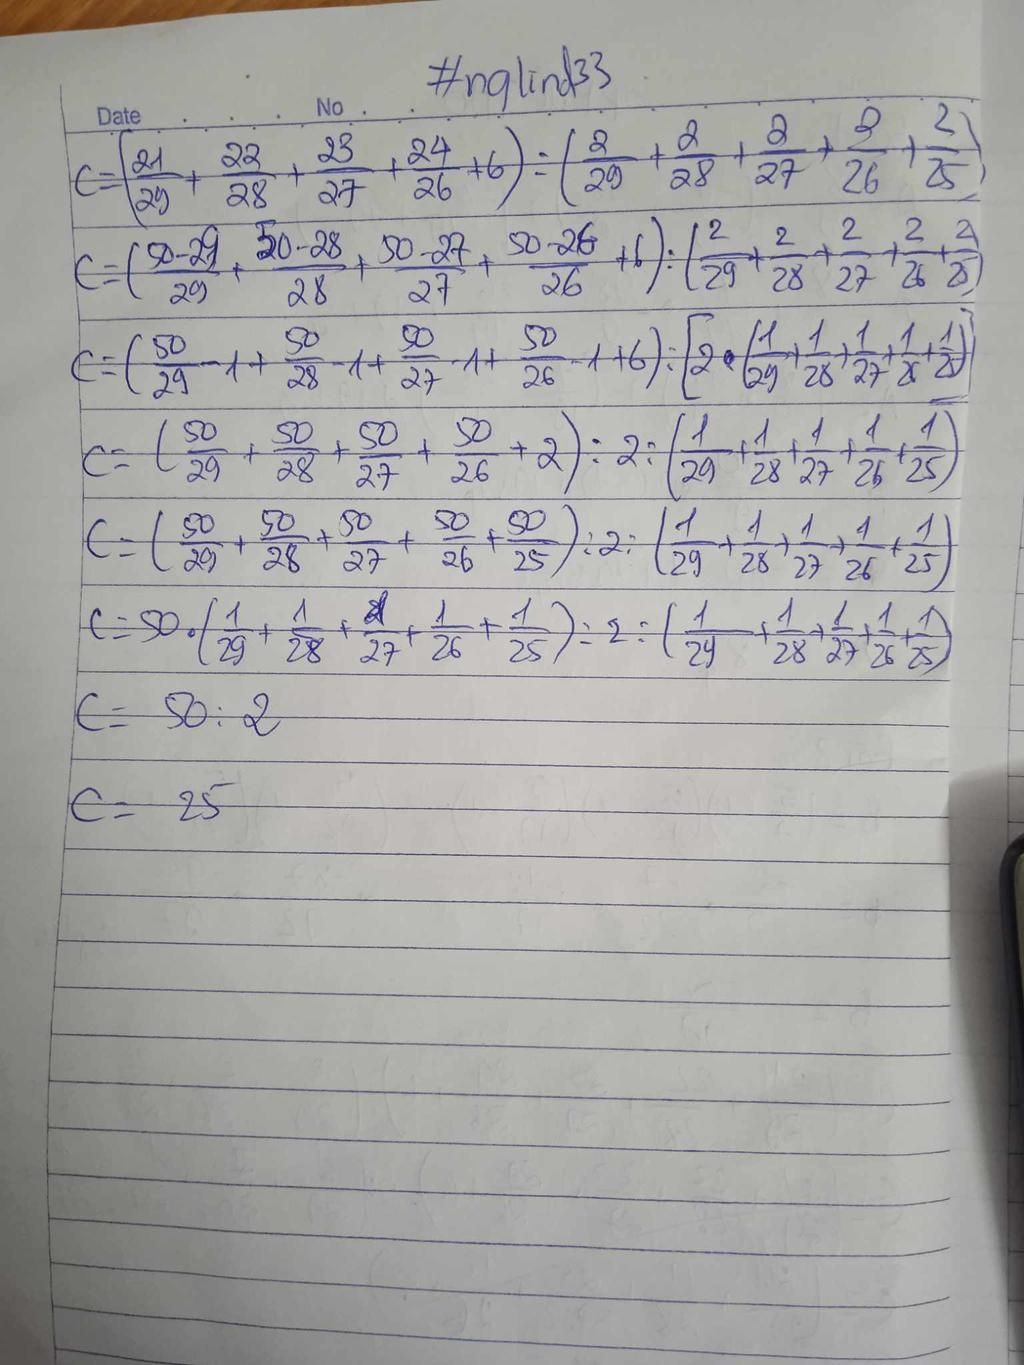 #nglind33
Date No
C=(21/29 + 22/28 + 23/27 + 24/26 + 6) : (2/29 + 2/28 + 2/27 + 2/26 + 2/25)
C=(50-29/29 + 50-28/28 + 50-27/27 + 50-26/26 + 6) : (2/29 + 2/28 + 2/27 + 2/26 + 2/25)
C=(50/29 - 1 + 50/28 - 1 + 50/27 - 1 + 50/26 - 1 + 6) : [2 • (1/29 + 1/28 + 1/27 + 1/26 + 1/25)]
C= (50/29 + 50/28 + 50/27 + 50/26 + 2) : 2 : (1/29 + 1/28 + 1/27 + 1/26 + 1/25)
C= (50/29 + 50/28 + 50/27 + 50/26 + 50/25) : 2 : (1/29 + 1/28 + 1/27 + 1/26 + 1/25)
C= 50 • (1/29 + 1/28 + 1/27 + 1/26 + 1/25) : 2 : (1/29 + 1/28 + 1/27 + 1/26 + 1/25)
C= 50 : 2
C= 25